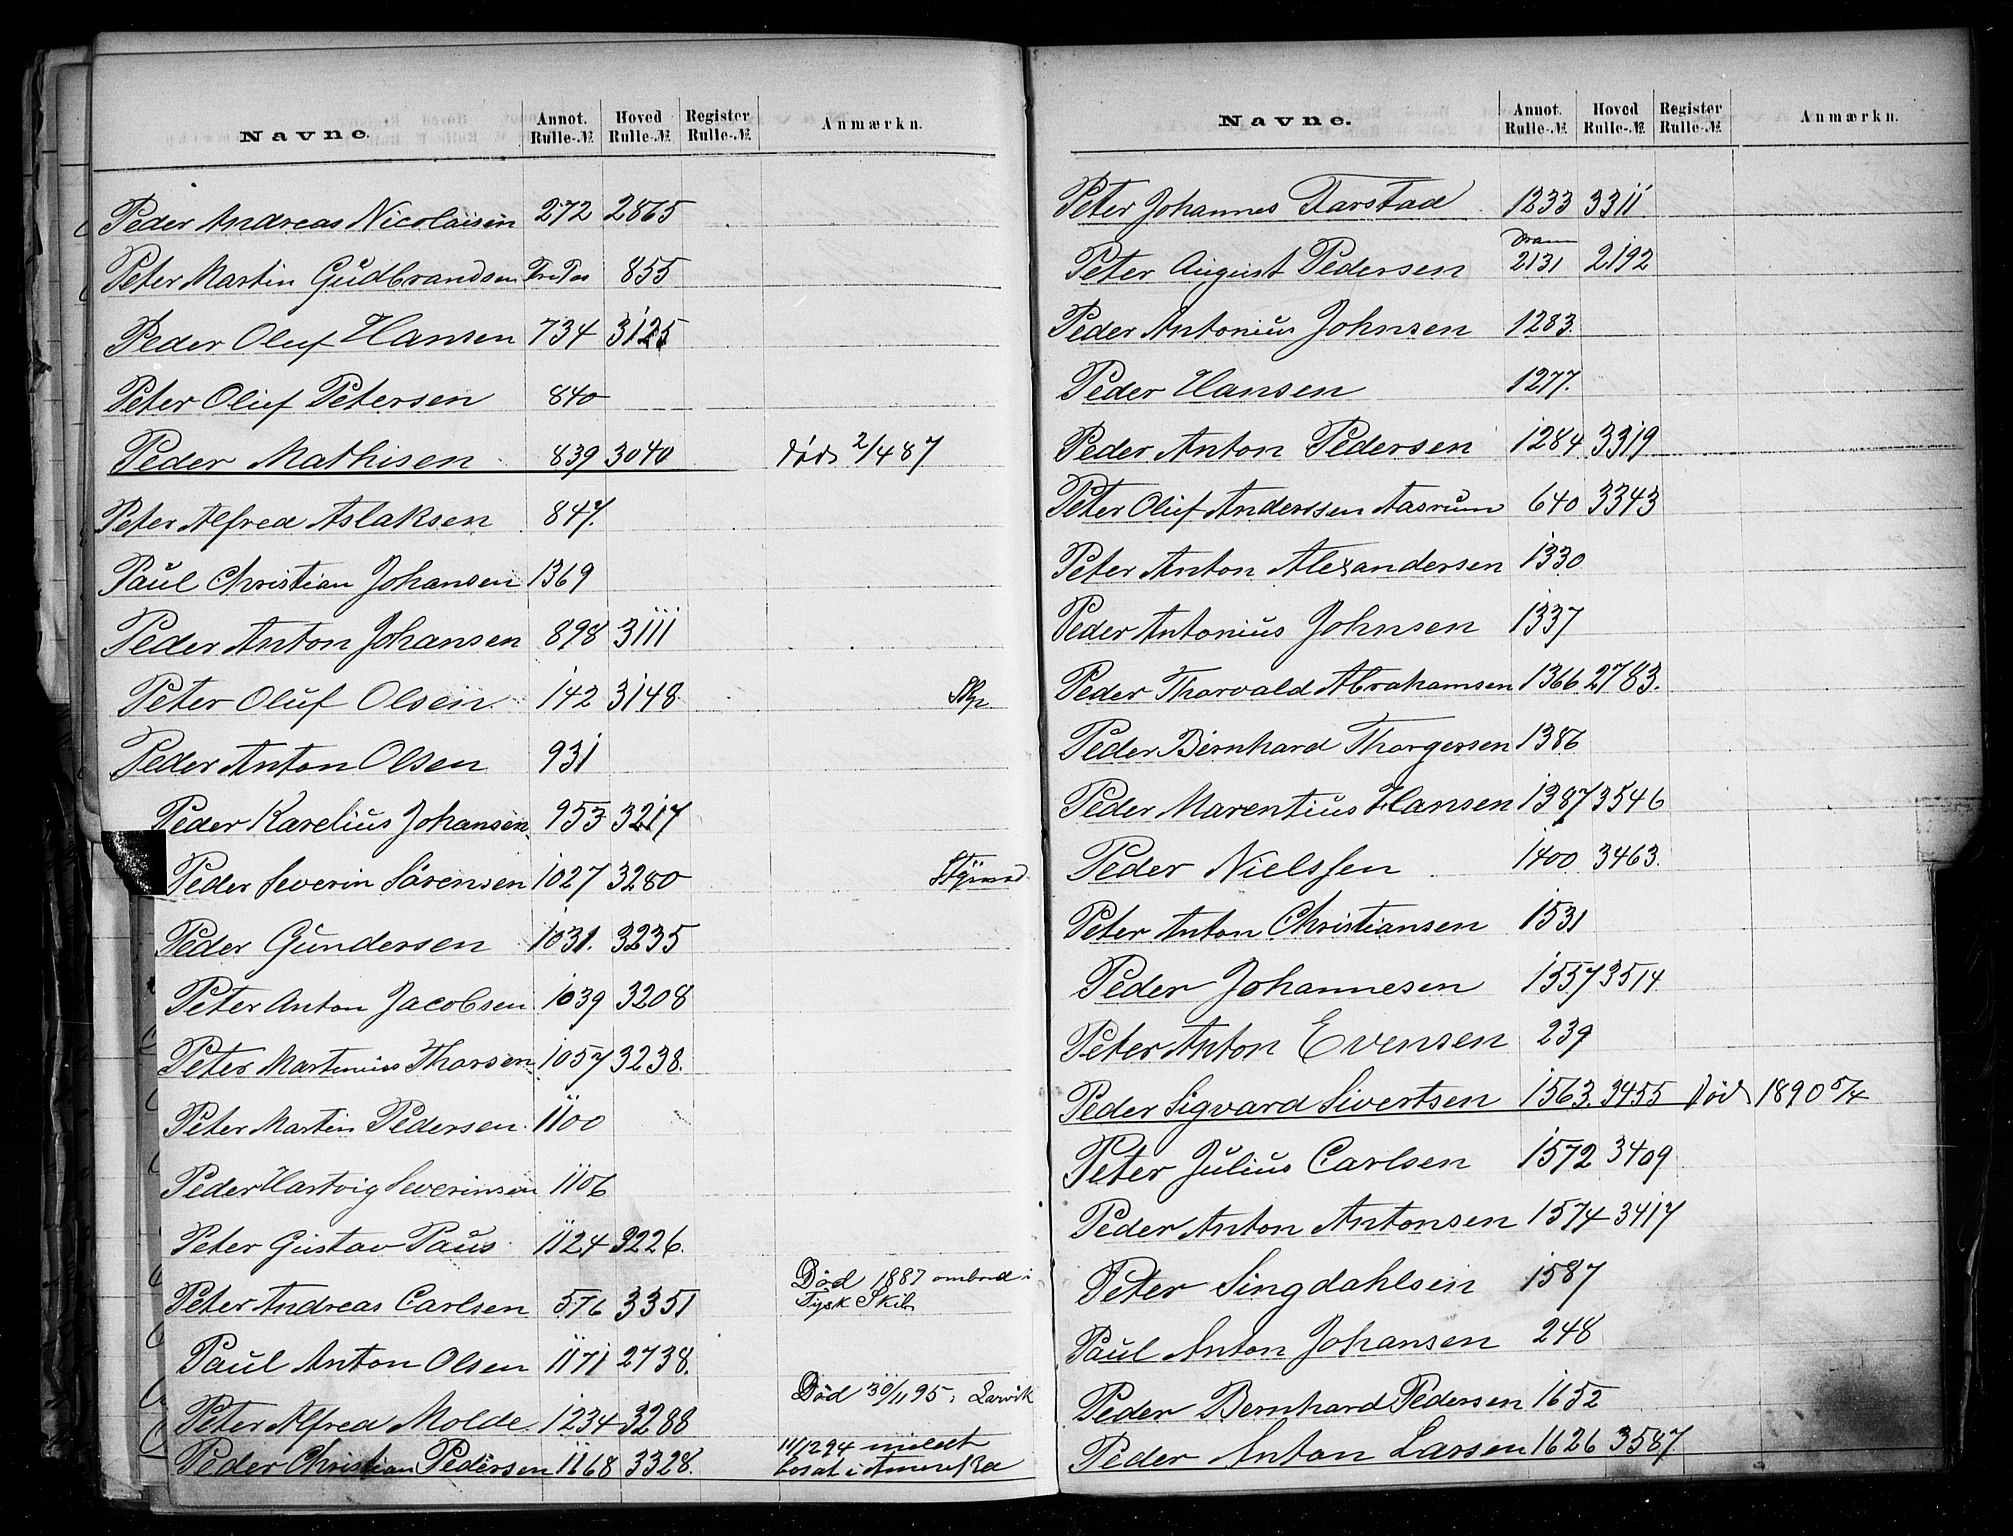 Navne. Annot. Rulle-№ Hoved Rulle-№ Register Rulle-№ Anmærkn.
Peder Andreas Nicolaisen 272 2865
Peter Martin Gudbrandsen 855
Peder Oluf Hansen 734 3125
Peter Oluf Petersen 840
Peder Mathisen 839 3040 Død 2/4 87
Peter Alfred Aslaksen 847.
Paul Christian Johansen 1369
Peder Anton Johansen 898 3111
Peter Oluf Olsen 142 3148
Peder Anton Olsen 931
Peder Karelius Johansen. 953 3217
Peder Severin Sørensen 1027 3280 Styrmd
Peder Gundersen 1031. 3235
Peter Anton Jacobsen 1039 3208
Peter Martinius Thorsen 1057 3238.
Peter Martin Pedersen. 1100
Peder Hartvig Severinsen 1106
Peter Gustav Paus 1124 3226.
Død 1887 ombord i
Peter Andreas Carlsen. 576 3351 Tysk Skib
Paul Anton Olsen 1171 2738.
Død 30/11 95 i Larvik
Peter Alfred Molde. 1234 3288
11/12 94 meldt
Peder Christian Pedersen 1168 3328. bosat i Amerika
Navne. Annot. Rulle-№ Hoved Rulle-№ Register Rulle-№ Anmærkn.
Peter Johannes Farstad 1233 3311
Dram
Peter August Pedersen 2131 2192
Peder Antonius Johnsen 1283.
Peder Hansen 1277.
Peder Anton Pedersen 1284 3319
Peter Oluf Anderssen Aasrum 640 3343
Peter Anton Alexandersen 1330
Peder Antonius Johnsen 1337
Peder Thorvald Abrahamsen 1366 2783.
Peder Bernhard Thorgersen 1386
Peder Marentius Hansen 1387 3546
Peder Nielssen 1400 3463.
Peter Anton Christiansen 1531
Peder Johannesen 1557 3514
Peter Anton Evensen 239
Peder Sigvard Sivertsen 1563. 3455 Død 1890 5/4
Peter Julius Carlsen 1572 3409
Peder Anton Antonsen 1574 3417
Peter Singdahlsen 1587
Paul Anton Johansen 248
Peder Bernhard Pedersen 1652
Peder Anton Larsen 1626 3587